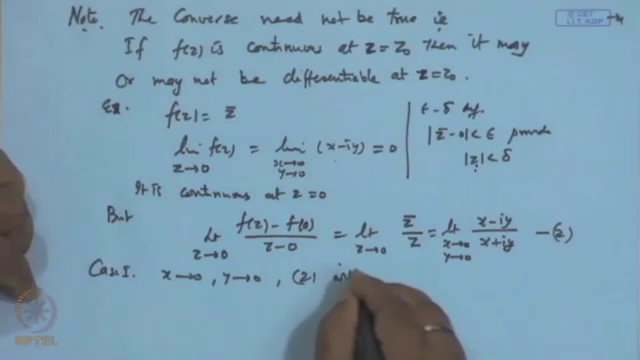 Note. The Converse need not be true ie
If f(z) is continuous at z = z₀ then it may
Or may not be differentiable at z = z₀.
Ex. f(z) = z̄
lim z→0 f(z) = lim x→0 y→0 (x-iy) = 0
ε-δ def.
|z̄-0| < ε provide
|z| < δ
It is continuous at z=0
But lt z→0 f(z)-f(0) / z-0 = lt z→0 z̄/z = lt x→0 y→0 x-iy / x+iy —(2)
Case I. x→0, y→0, (2)
© CET
I.I.T. KGP
NPTEL